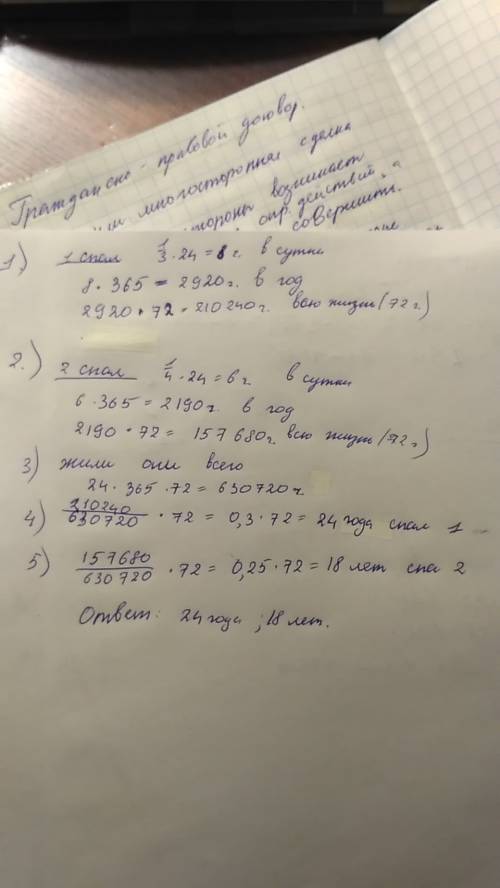 Гражданско - правовой договор.
многосторонняя сделка
стороны возникает
опр. действий, а
совершить.
1) 1 спал 1/3 · 24 = 8 г. в сутки
8 · 365 = 2920 г. в год
2920 · 72 = 210240 г. всю жизнь (72 г.)
2.) 2 спал 1/4 · 24 = 6 г. в сутки
6 · 365 = 2190 г. в год
2190 · 72 = 157680 г. всю жизнь (72 г)
3) жили они всего
24 · 365 · 72 = 630720 г.
4) 210240/630720 · 72 = 0,3 · 72 = 24 года спал 1
5) 157680/630720 · 72 = 0,25 · 72 = 18 лет спал 2
Ответ: 24 года ; 18 лет.